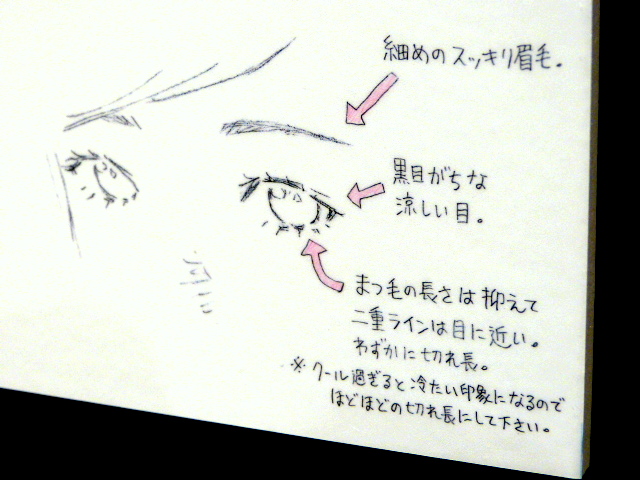 細めのスッキリ眉毛。
黒目がちな
涼しい目。
まつ毛の長さは抑えて
二重ラインは目に近い。
わずかに切れ長。
※クール過ぎると冷たい印象になるので
ほどほどの切れ長にして下さい。